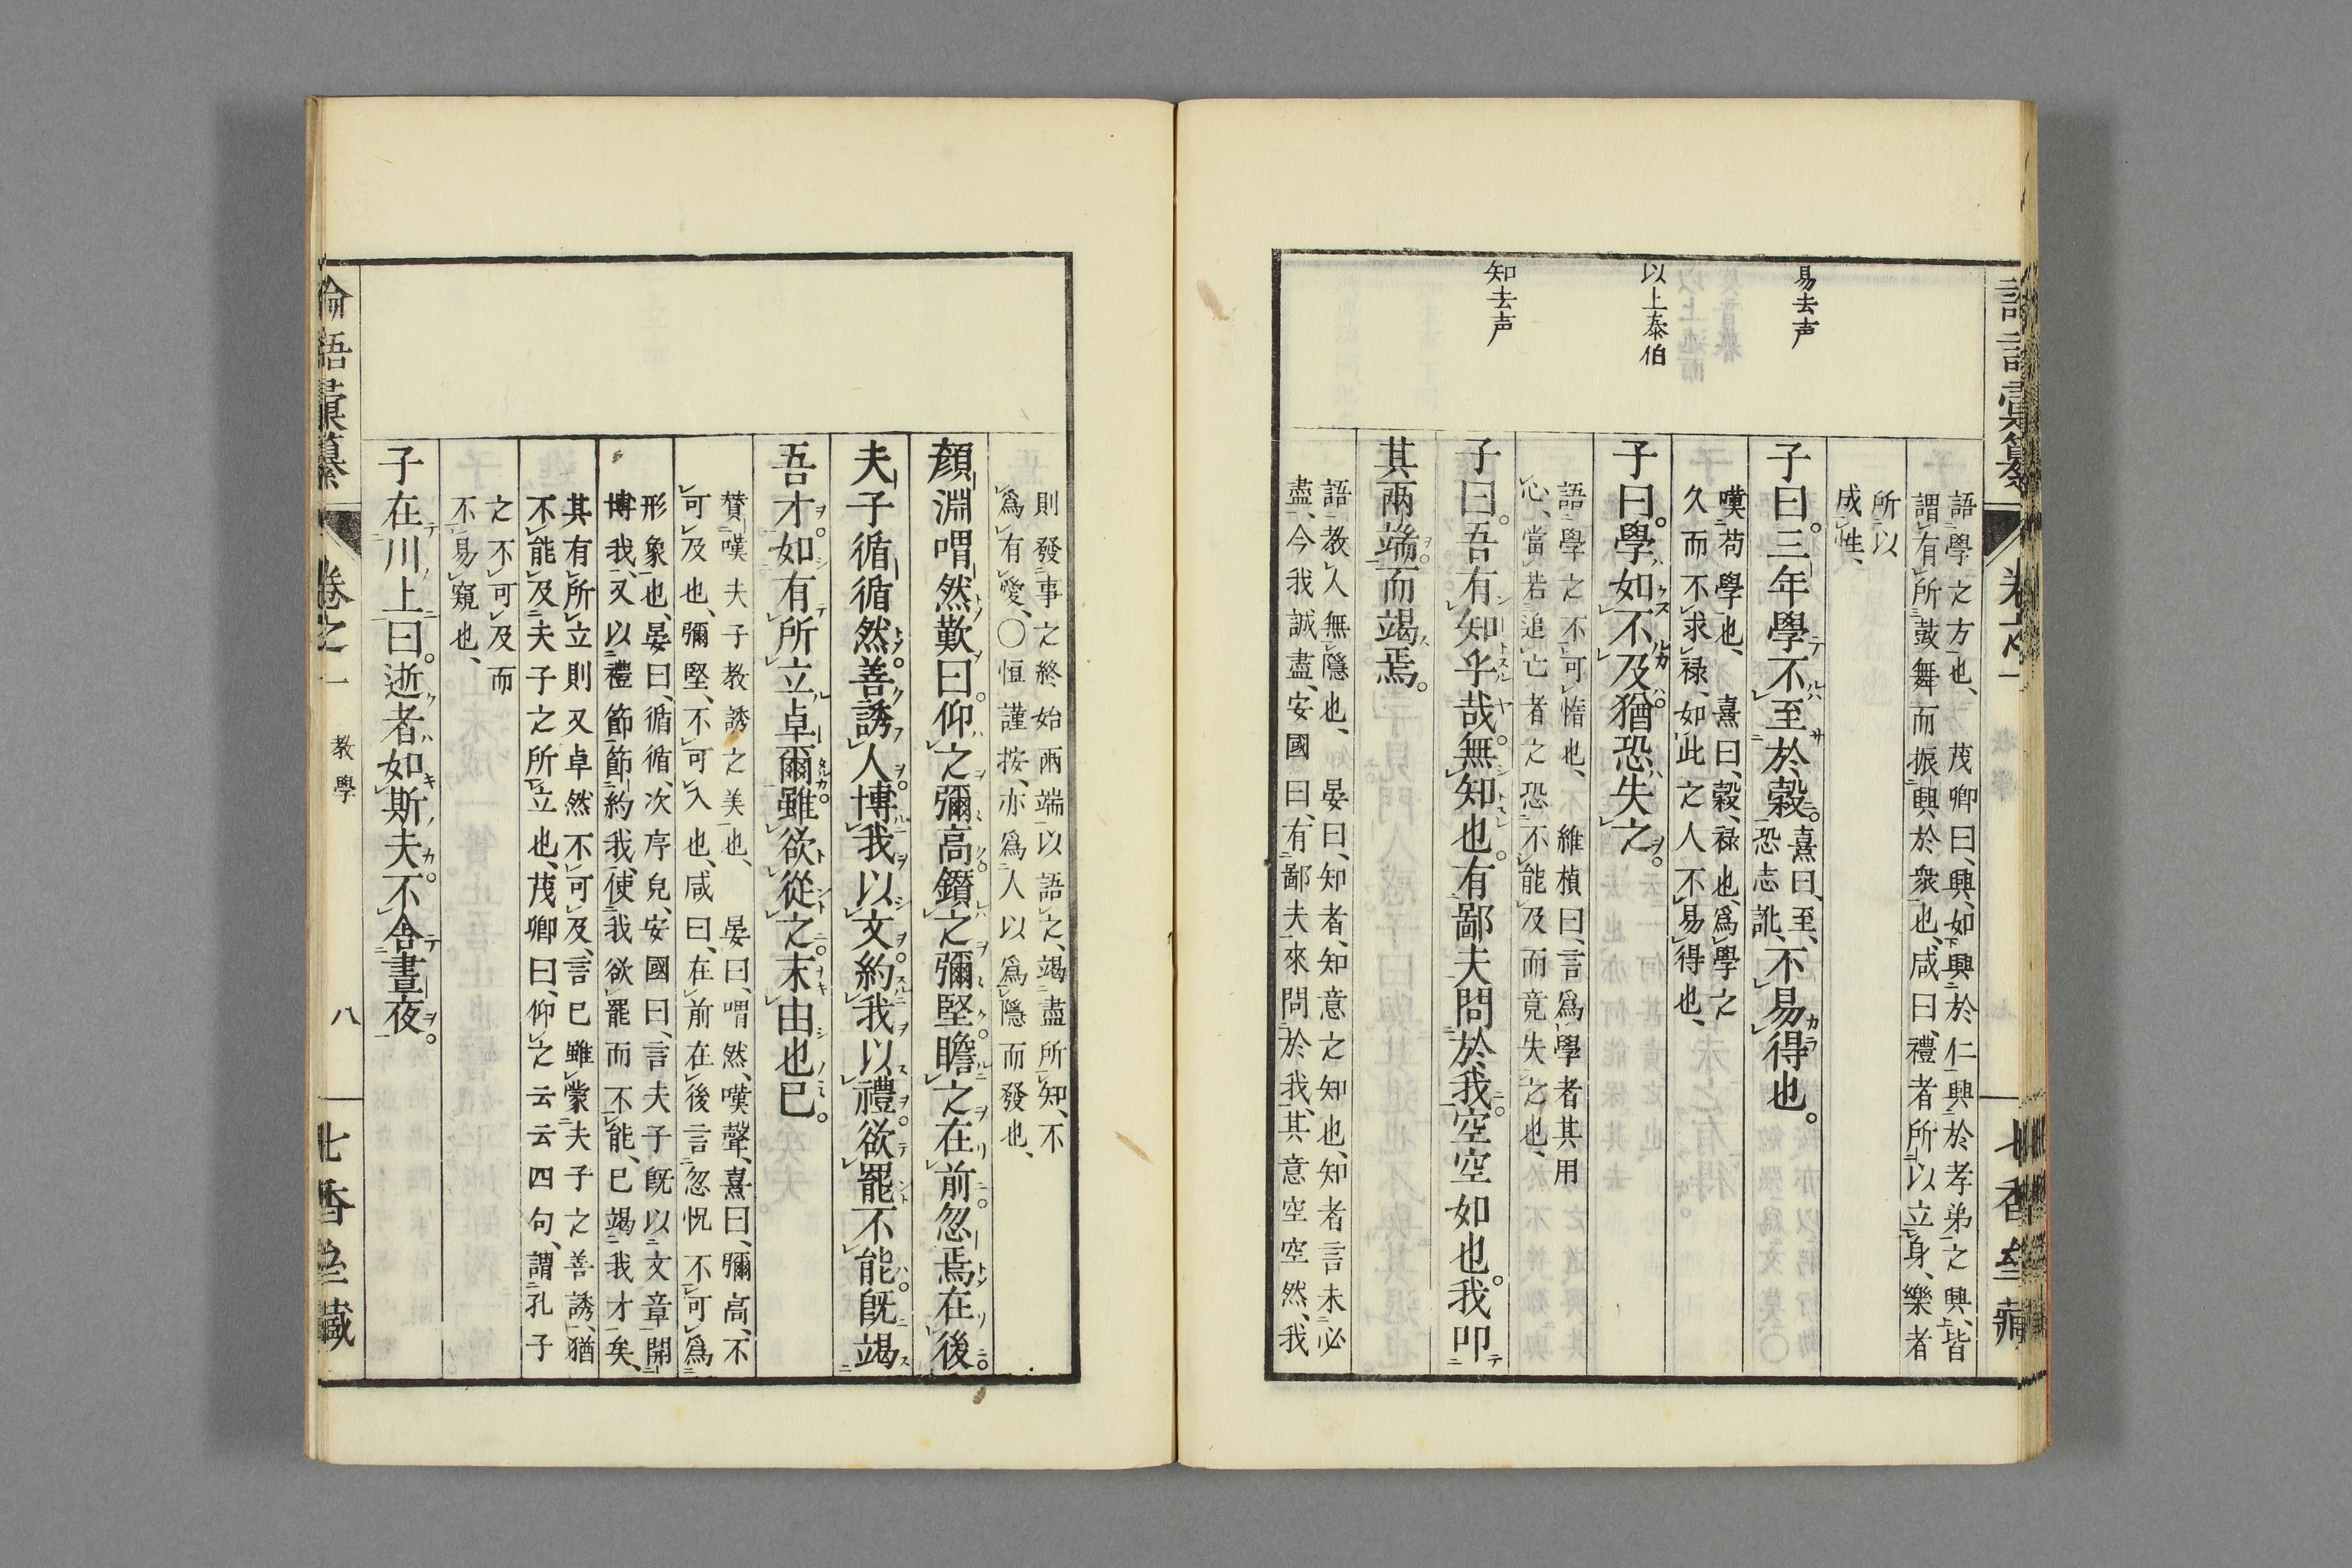 易去声
以上泰伯
知去声
語學之方也、茂卿曰、興、如興於仁興於孝弟之興、皆
謂有所鼓舞而振興於衆也、咸曰、禮者所以立身、樂者
所以
成性、
子曰。三年學不至於穀。熹曰、至、
恐志訛、不易得也。
嘆苟學也、熹曰、穀、祿也、爲學之
久而不求祿、如此之人不易得也、
子曰。學如不及猶恐失之。
語學之不可惰也、維楨曰、言爲學者其用
心、當若追亡者之恐不能及而竟失之也、
子曰。吾有知乎哉。無知也。有鄙夫問於我。空空如也。我叩
其兩端而竭焉。
語教人無隱也、晏曰、知者、知意之知也、知者言未必
盡、今我誠盡、安國曰、有鄙夫來問於我、其意空空然、我
則發事之終始兩端以語之、竭盡所知、不
爲有愛、〇恒謹按、亦爲人以爲隱而發也、
顏淵喟然歎曰。仰之彌高鑽之彌堅瞻之在前忽焉在後
夫子循循然善誘人博我以文約我以禮欲罷不能既竭
吾才如有所立卓爾雖欲從之末由也已。
贊嘆夫子教誘之美也、晏曰、喟然、嘆聲、熹曰、彌高、不
可及也、彌堅、不可入也、咸曰、在前在後言忽怳不可爲
形象也、晏曰、循循、次序皃、安國曰、言夫子既以文章開
博我、又以禮節節約我、使我欲罷而不能、已竭我才矣、
其有所立則又卓然不可及、言已雖蒙夫子之善誘、猶
不能及夫子之所立也、茂卿曰、仰之云云四句、謂孔子
之不可及而
不易窺也、
子在川上曰。逝者如斯夫。不舍晝夜。
論語彙纂 卷之一 教學 八 七香堂藏